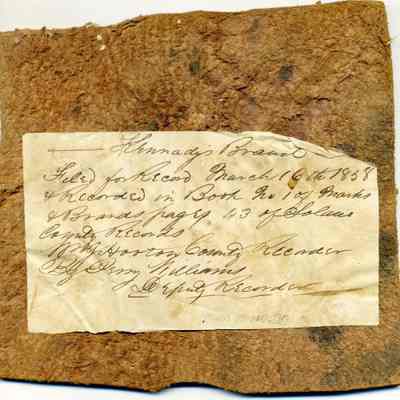 Kennadys Brand
Filed for Record March 16th 1858
& Recorded in Book No 1 of Marks
& Brands page 43 of Solano
County Records
Horton County Recorder
By Williams
Deputy Recorder